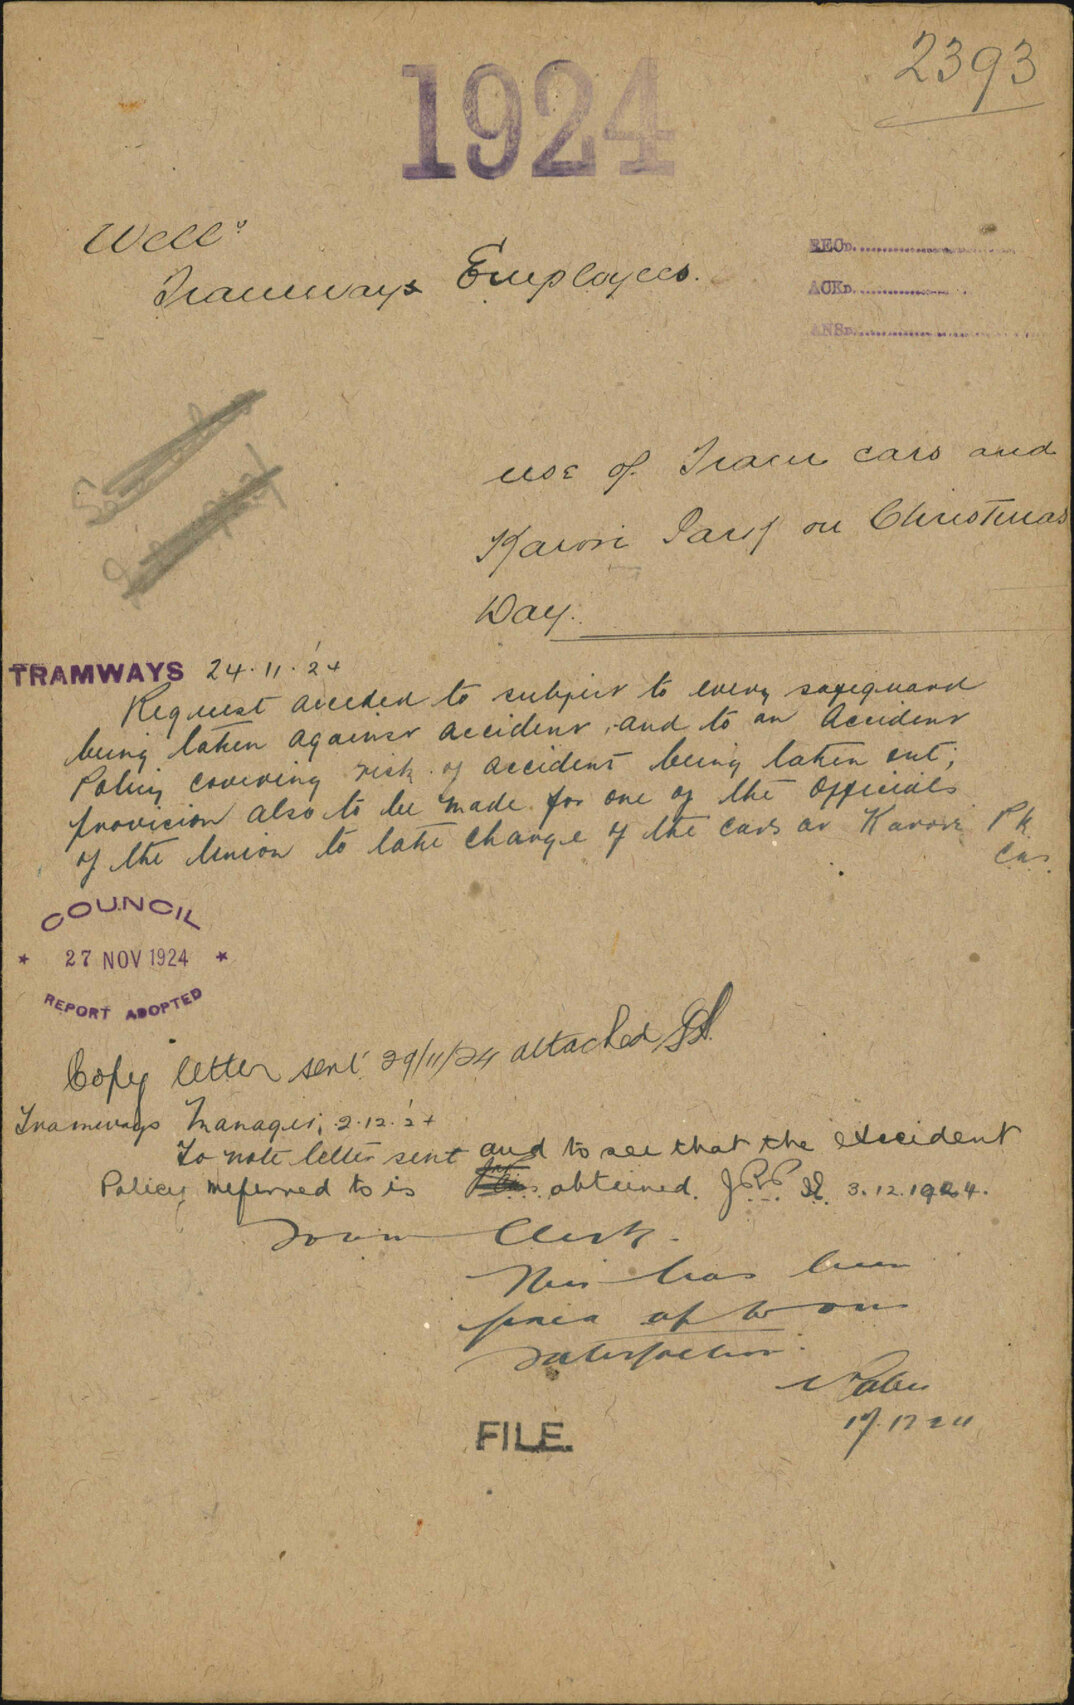 2393
1924
Well"
Tramways Employees.
RECD.
ACKD.
ANSD.
use of Tram cars and
Karori Park on Christmas
Day.
TRAMWAYS 24.11.'24
Request acceded to subject to every safeguard
being taken against accident, and to an Accident
Policy covering risk of accident being taken out;
provision also to be made for one of the Officials
of the Union to take charge of the cars at Karori Pk
COUNCIL
* 27 NOV 1924 *
REPORT ADOPTED
Copy letter sent 29/11/24 attached
Tramways Manager, 2.12.'24
To note letter sent and to see that the accident
Policy referred to is obtained. 3.12.1924.
Town Clerk.
This has been
to our
satisfaction.
FILE.